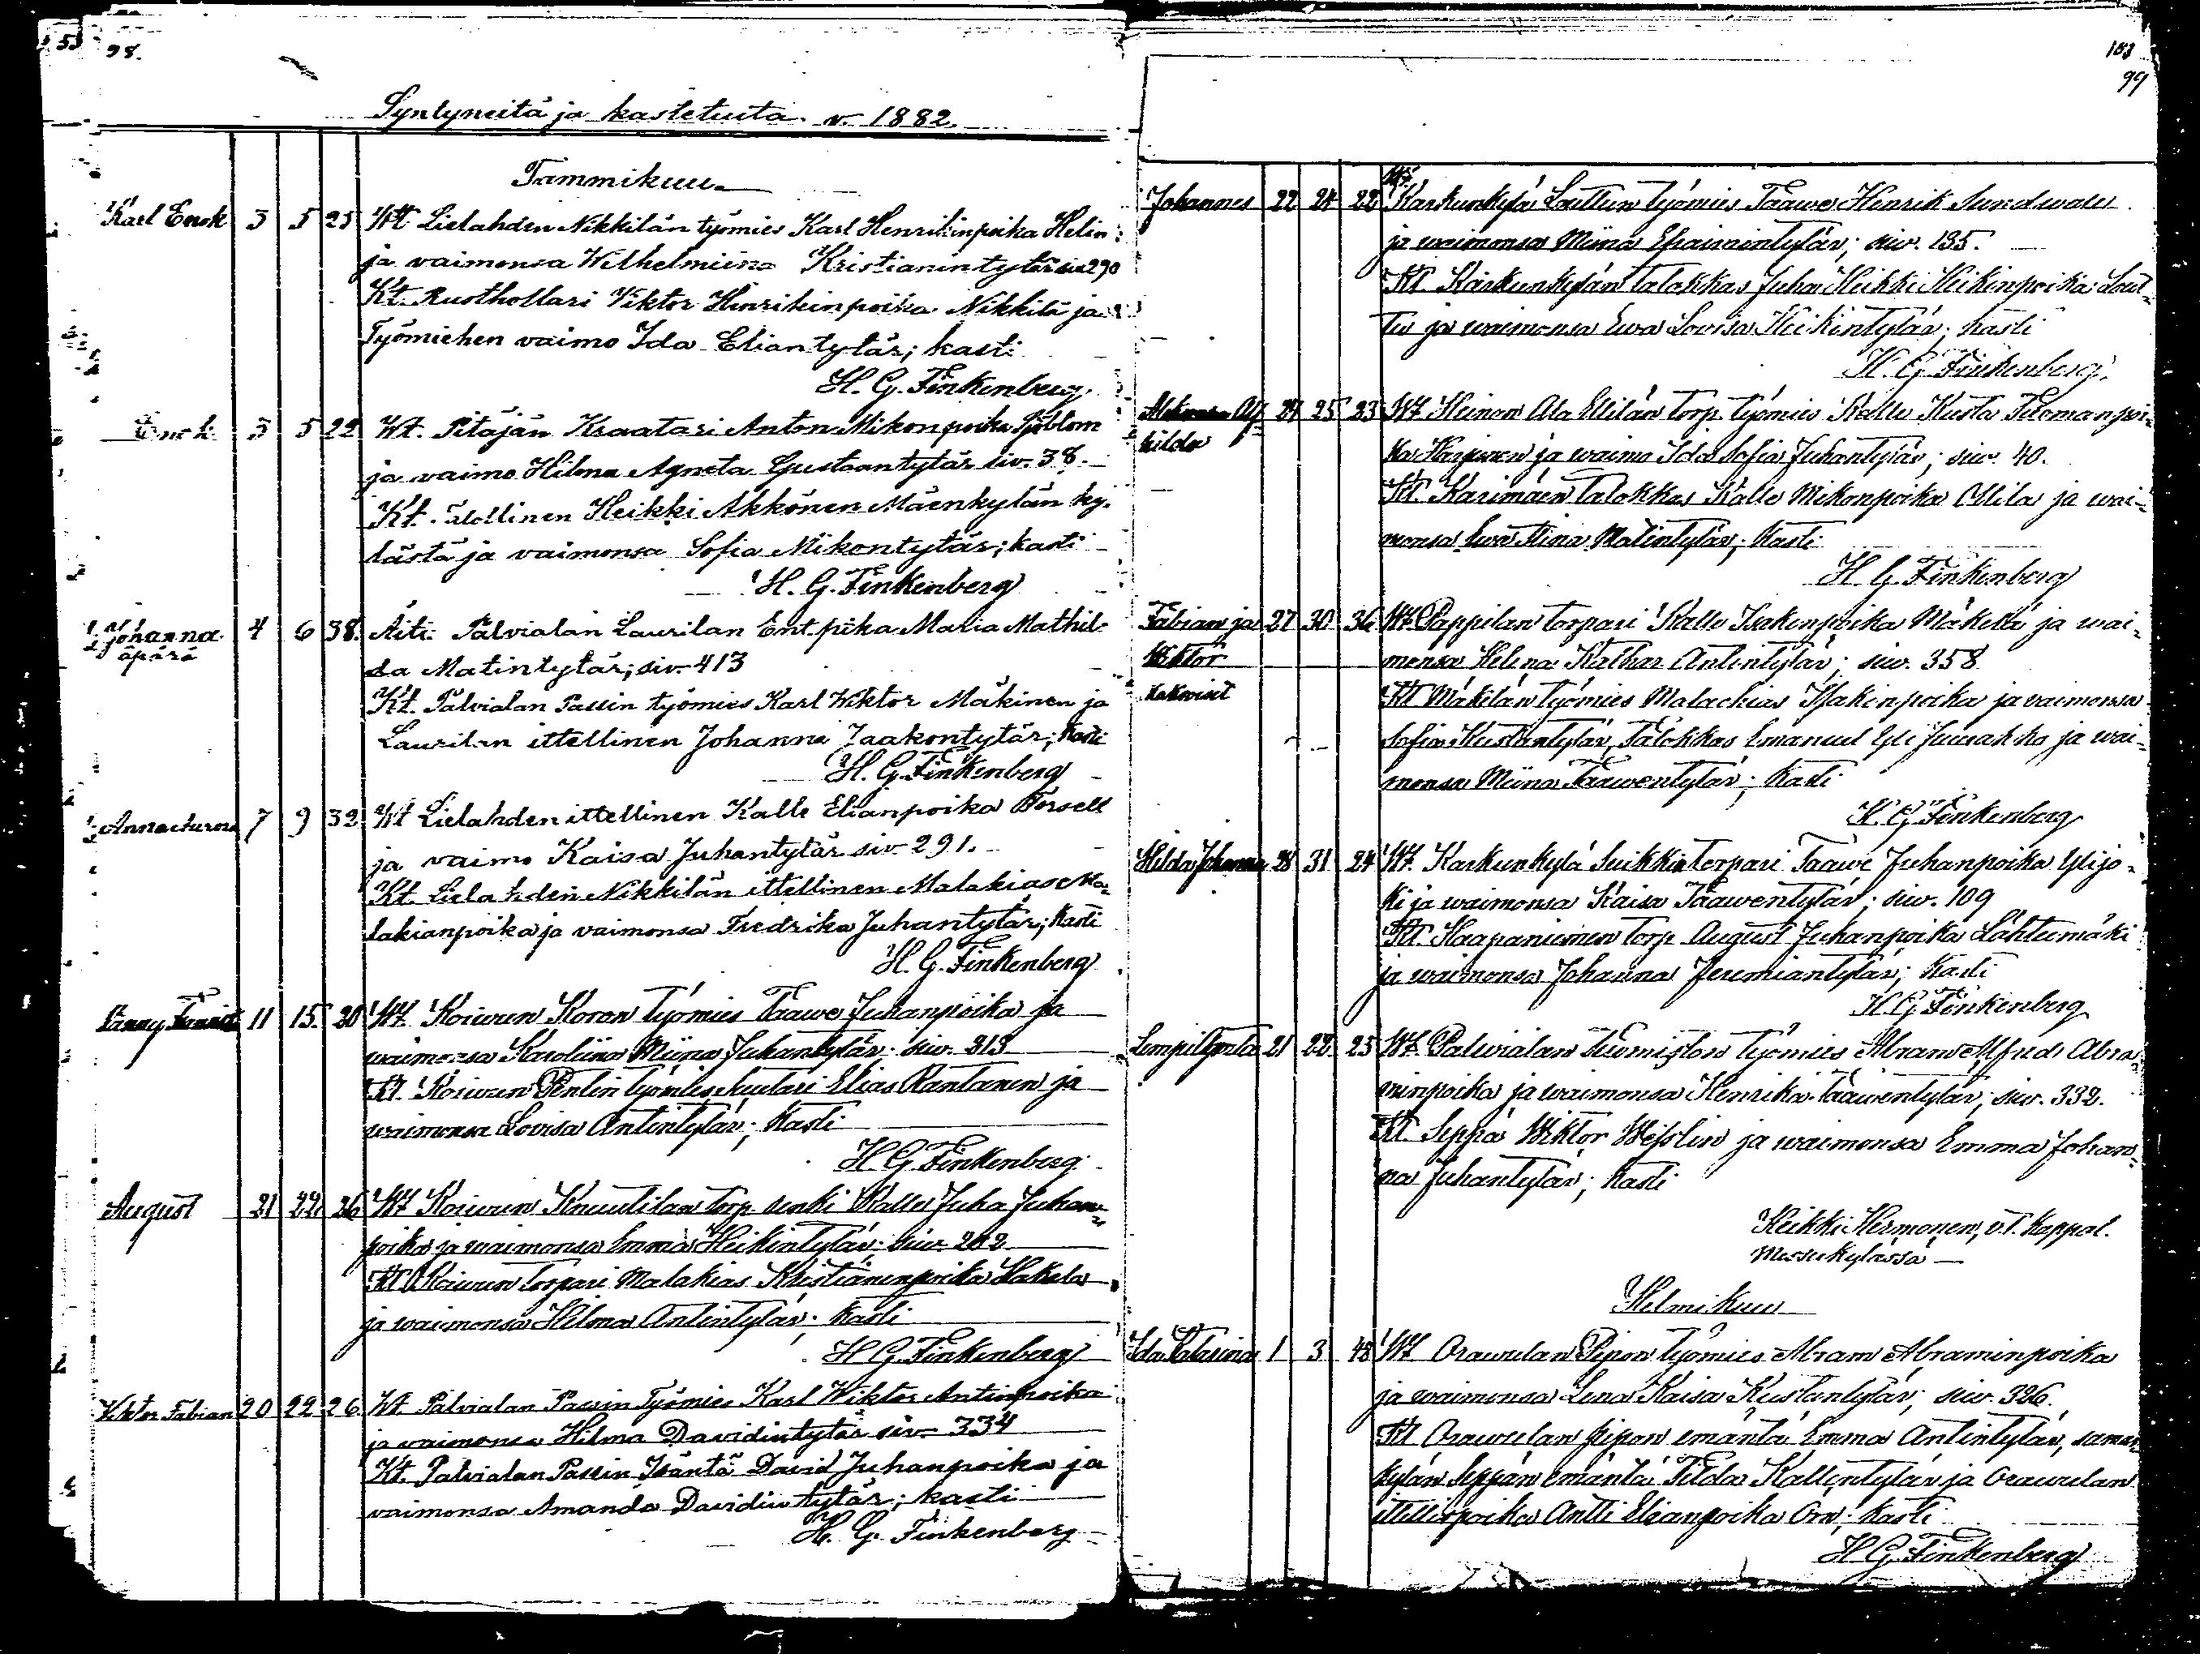 98.
Syntyneitä ja kastetuita v. 1882.
Tammikuu
Karl Enok 3 5 25 Wt Lielahden Nikkilän työmies Karl Henrikinpoika Helin
ja vaimonsa Wilhelmiina Kristianintytär siv 290
Kt. Rusthollari Viktor Henrikinpoika Nikkilä ja
Työmiehen vaimo Ida Eliantytär; kasti
H. G. Finkenberg.
Enok 3 5 22 Wt. Pitäjän Kraatari Anton Mikonpoika Sjöblom
ja vaimo Hilma Agneta Gustaantytär siv. 38.
Kt. itellinen Heikki Akkönen Mäenkylän ky-
lästä ja vaimonsa Sofia Mikontytär; kasti
H. G. Finkenberg
Johanna 4 6 38. Äiti Palvialan Laurilan Ent. piika Maria Mathil-
äpärä da Matintytär; siv. 413
Kt. Palvialan Passin työmies Karl Viktor Mäkinen ja
Laurilan ittellinen Johanna Jaakontytär; Kasti
H. G. Finkenberg
Anna 7 9 32 Wt Lielahden ittellinen Kalle Elianpoika Forsell
ja vaimo Kaisa Juhantytär siv 291.
Kt. Lielahden Nikkilän ittellinen Malakias Ma-
lakianpoika ja vaimonsa Fredrika Juhantytär; Kasti
H. G. Finkenberg
Fanny 11 15. 30 Wt. Koivun Koron Työmies Taawe Juhanpoika ja
waimonsa Karoliina Miina Juhantytär; siw. 213
Kt. Koiwun Penlin Työmies Elias Rantanen ja
waimonsa Lovisa Antintytär; Kasti
H. G. Finkenberg
August 21 22 26 Wt Koiwun Knuutilan torp. renki Kalle Juha Juhan-
poika ja waimonsa Emma Heikintytär; siw. 262
Kt Koiwun Torpari Malakias Kristianinpoika Hakala
ja waimonsa Hilma Antintytär; Kasti
H G. Finkenberg
Viktor Fabian 20 22 26 Wt Palvialan Passin Työmies Karl Wiktor Antinpoika
ja vaimonsa Hilma Davidintytär siv. 334
Kt. Palvialan Passin Isäntä David Juhanpoika ja
vaimonsa Amanda Davidintytär; kasti
H. G. Finkenberg
103
99
Johannes 22 24 22 Wt. Karkunkylä Lauttun työmies Taawe Henrik Sundwall
ja waimonsa Miina Efraimintytär; siw. 135.
Kt Karkunkylän talokkas Juha Heikki Heikinpoika Laut-
tu ja waimonsa Ewa Lovisa Heikintytär; Kasti
H. G. Finkenberg.
24 25 23 Wt Heinon Ala Ellilän torp. työmies Kalle Kusta Tuomanpoi-
hilda ka ja waimo Ida Sofia Juhantytär; siw. 40.
Kt. Karimäen Talokkas Kalle Mikonpoika Ollila ja wai-
monsa Ewa Stina Matintytär; Kasti
H. G. Finkenberg
Fabian ja 27 30 36 Wt. Pappilan torpari Kalle Isakinpoika Mäkelä ja wai-
Wiktor monsa Helena Kathar. Antintytär; siw. 358
Kaksoiset Kt Mäkilän Työmies Malachias Isakinpoika ja vaimonsa
Sofia Kustantytär, Talokkas Emanuel Yli Juusakko ja wai-
monsa Miina Taawentytär; Kasti
H. G. Finkenberg
Hilda Johanna 28 31 24 Wt. Karkunkylä Suikki Torpari Taawe Juhanpoika Ylijo-
ki ja waimonsa Kaisa Taawentytär; siw. 109
Kt. Haapaniemen Torp. August Juhanpoika Lähteemäki
ja waimonsa Johanna Jeremiantytär; Kasti
H G. Finkenberg
Lempi Agata 21 22 25 Wt. Palvialan Tuomiston Työmies Abram Alfred Abra-
minpoika ja waimonsa Henrika Taawentytär; siw. 332.
Kt. Seppä Wiktor Weslin ja waimonsa Emma Johan-
na Juhantytär; Kasti
Heikki Hermonen, v.t. Kappal.
Messukylässä
Helmikuu
Ida Katarina 1 3 48 Wt Orawulan Piipon Työmies Abram Abraminpoika
ja waimonsa Lena Kaisa Kustantytär; siw. 326.
Kt Orawulan Piipon emäntä Emma Antintytär, saman
kylän Seppän emäntä Tilda Kallentytär ja Orawulan
ittellispoika Antti Elianpoika Ora; Kasti
H G. Finkenberg